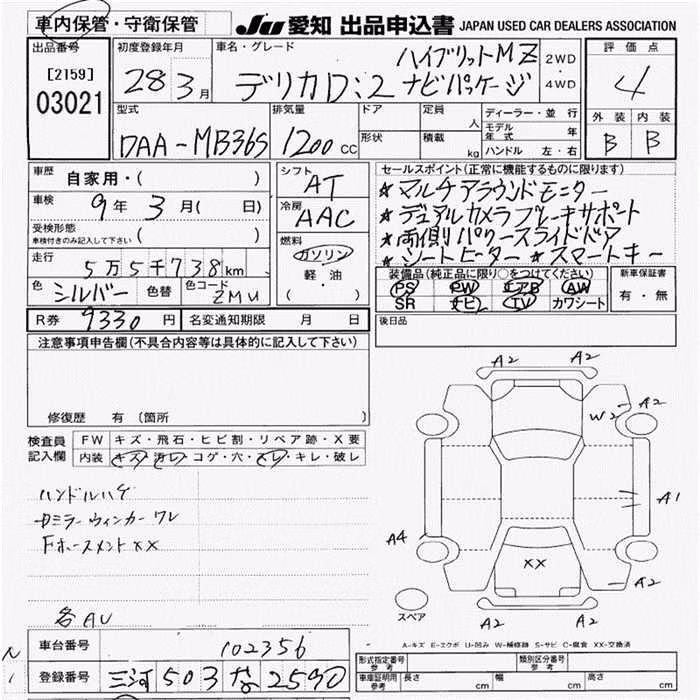 車内保管・守衛保管
JU 愛知 出品申込書 JAPAN USED CAR DEALERS ASSOCIATION
出品番号 初度登録年月 車名・グレード 評価点
[2159] 28年 3月 デリカD:2 ハイブリットMZ ナビパッケージ 2WD・4WD 4
03021
型式 排気量 ドア 定員 人 ディーラー・並行 外装 内装
DAA-MB36S 1200cc 形状 積載 kg モデル年式 年 B B
ハンドル 左・右
車歴 自家用・( ) シフト AT セールスポイント(正常に機能するものに限ります)
車検 9年 3月( 日) 冷房 AAC ★マルチアラウンドモニター
受検形態 車検付きのみ記入して下さい ( ) ★デュアルカメラブレーキサポート
燃料 ガソリン ★両側パワースライドドア
走行 5万5千738km 軽・油 ★シートヒーター ★スマートキー
( )
色 シルバー 色替 色コード ZMU
装備品(純正品に限り○をつけてください) 新車保証書
PS PW エアB AW 有・無
SR ナビ TV カワシート
R券 9330円 名変通知期限 月 日 後日品
注意事項申告欄(不具合内容等は具体的に記入して下さい)
修復歴 有 〔箇所 〕
検査員記入欄 FW キズ・飛石・ヒビ割・リペア跡・X要
内装 キズ・汚レ・コゲ・穴・スレ・キレ・破レ
ハンドルハゲ
ウィンカーワレ
XX
各AU
A2 A2
W2 A2
A1
A4
XX
A2
A2 A2
スペア
A-キズ E-エクボ U-凹み W-補修跡 S-サビ C-腐食 XX-交換済
車台番号 102356
登録番号 三河 503 な 2590
形式指定番号 参考 類別区分番号 参考
車庫証明用 参考 長さ cm 幅 cm 高さ cm